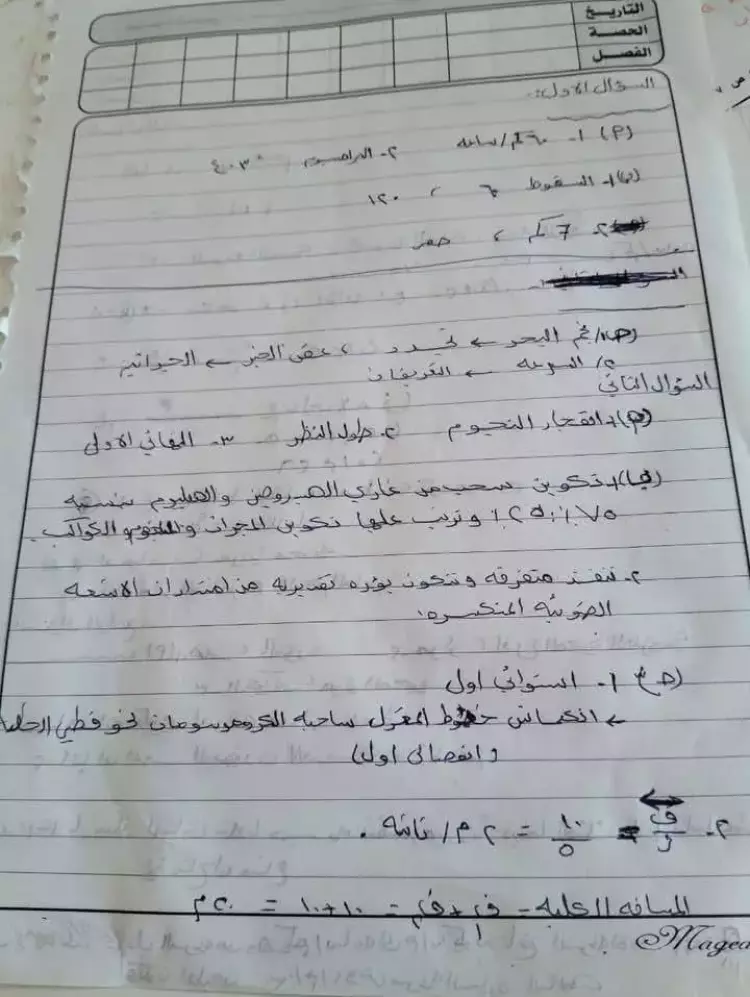 التاريخ
الحصة
الفصل
السؤال الاول:
(P) ١- ٦٠ كم/ساعه ٢- ٤٠٣٠
(ب) ١- السقوط ٦٠ ، ١٢٠
٢- ٦ كم ، صفر
(ج) ١/ نجم البحر ← تجدد ، عفن الخبز ← الجراثيم
٢/ السرعه ←
السؤال الثاني
(P) ١- انفجار النجوم ٢- طول النظر ٣- النهائي الاولى
(ب) ١- تكوين سحب من غازي الهيدروجين والهليوم بنسبه
٧٥٪ ، ٢٥٪ وترتب عليها تكوين المجرات والنجوم والكواكب.
٢- تنفذ متفرقه وتتكون بؤره تقديريه من امتدادات الاشعه
الضوئيه المنكسره.
(ج) ١- استوائي اول
← انكماش خيوط المغزل ساحبه الكروموسومات نحو قطبي الخليه
(انفصالى اول)
٢- ف/ز = ١٠/٥ = ٢ م/ثانيه .
المسافه الكليه = ف١ + ف٢ = ١٠+١٠ = ٢٠ م
Maged